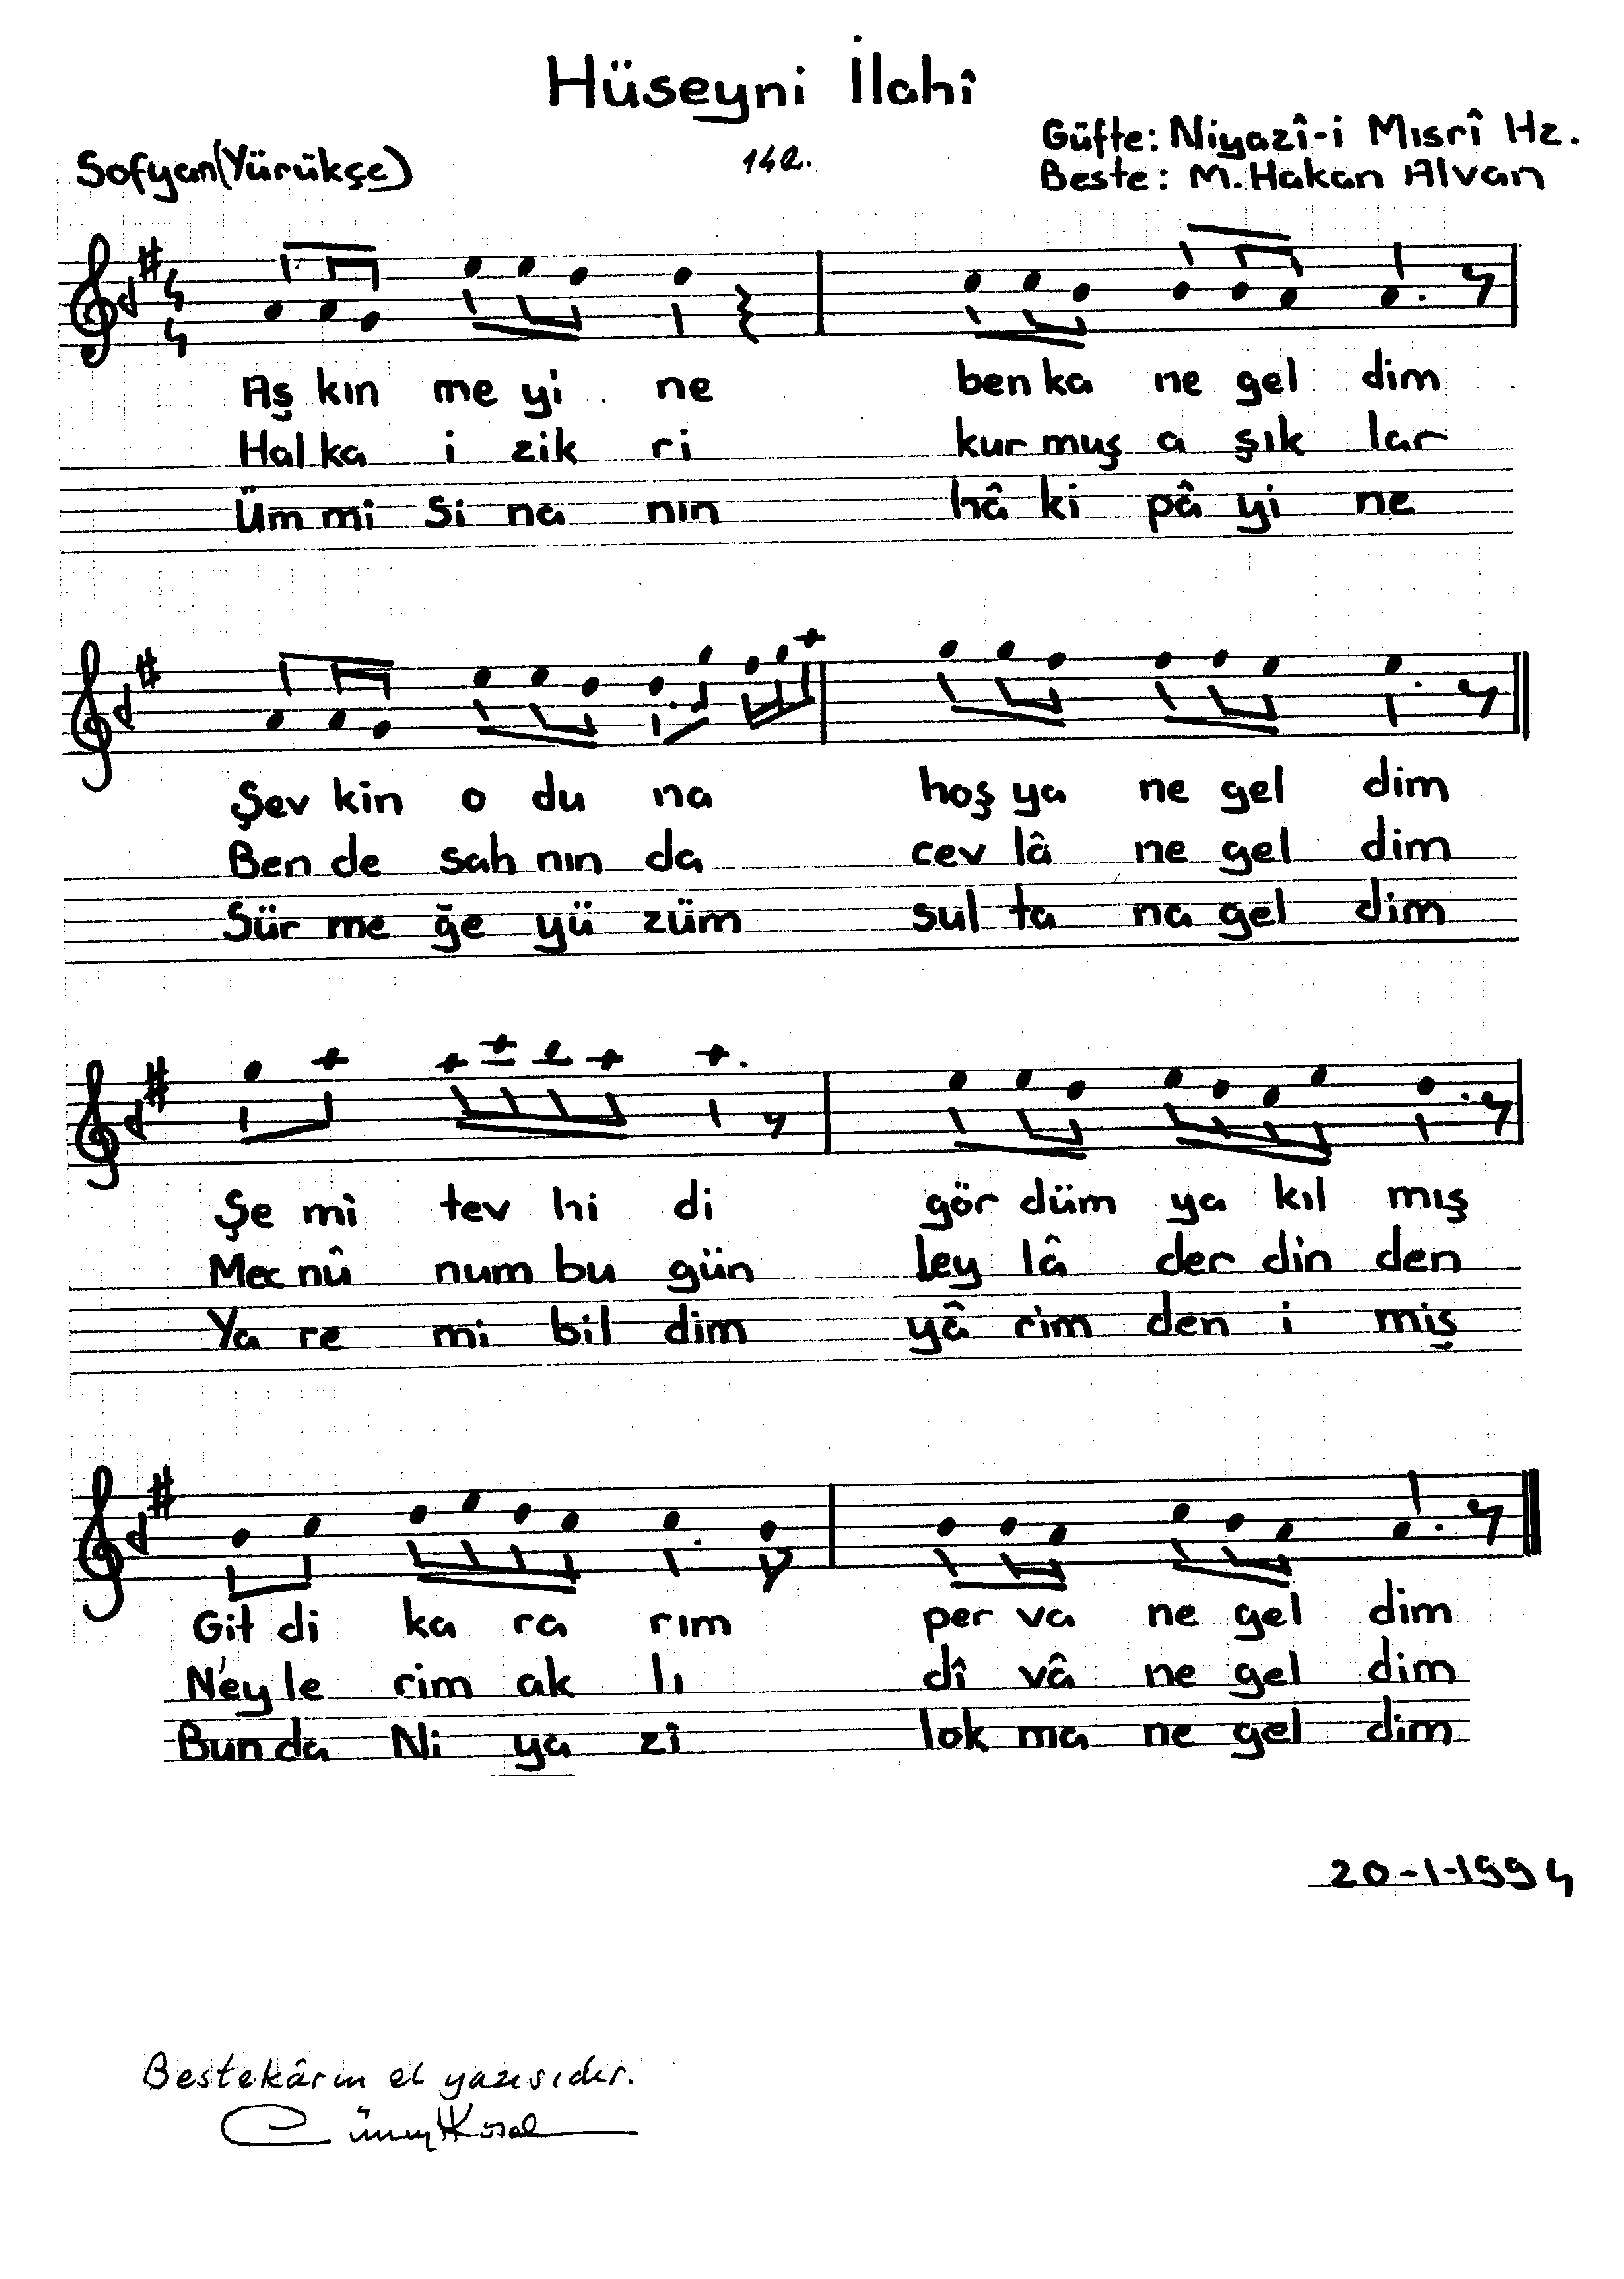 Hüseyni İlahî
Güfte: Niyazî-i Mısrî Hz.
Sofyan(Yürükçe)
142.
Beste: M. Hakan Alvan
Aş kın me yi ne ben ka ne gel dim
Hal ka i zik ri kur muş a şık lar
Üm mî Si na nın hâ ki pâ yi ne
Şev kin o du na hoş ya ne gel dim
Ben de sah nın da cev lâ ne gel dim
Sür me ğe yü züm sul ta na gel dim
Şe mi tev hi di gör düm ya kıl mış
Mec nû num bu gün ley lâ der din den
Ya re mi bil dim yâ rim den i miş
Git di ka ra rım per va ne gel dim
N'ey le rim ak lı dî vâ ne gel dim
Bun da Ni ya zî lok ma ne gel dim
20-1-1994
Bestekârın el yazısıdır.